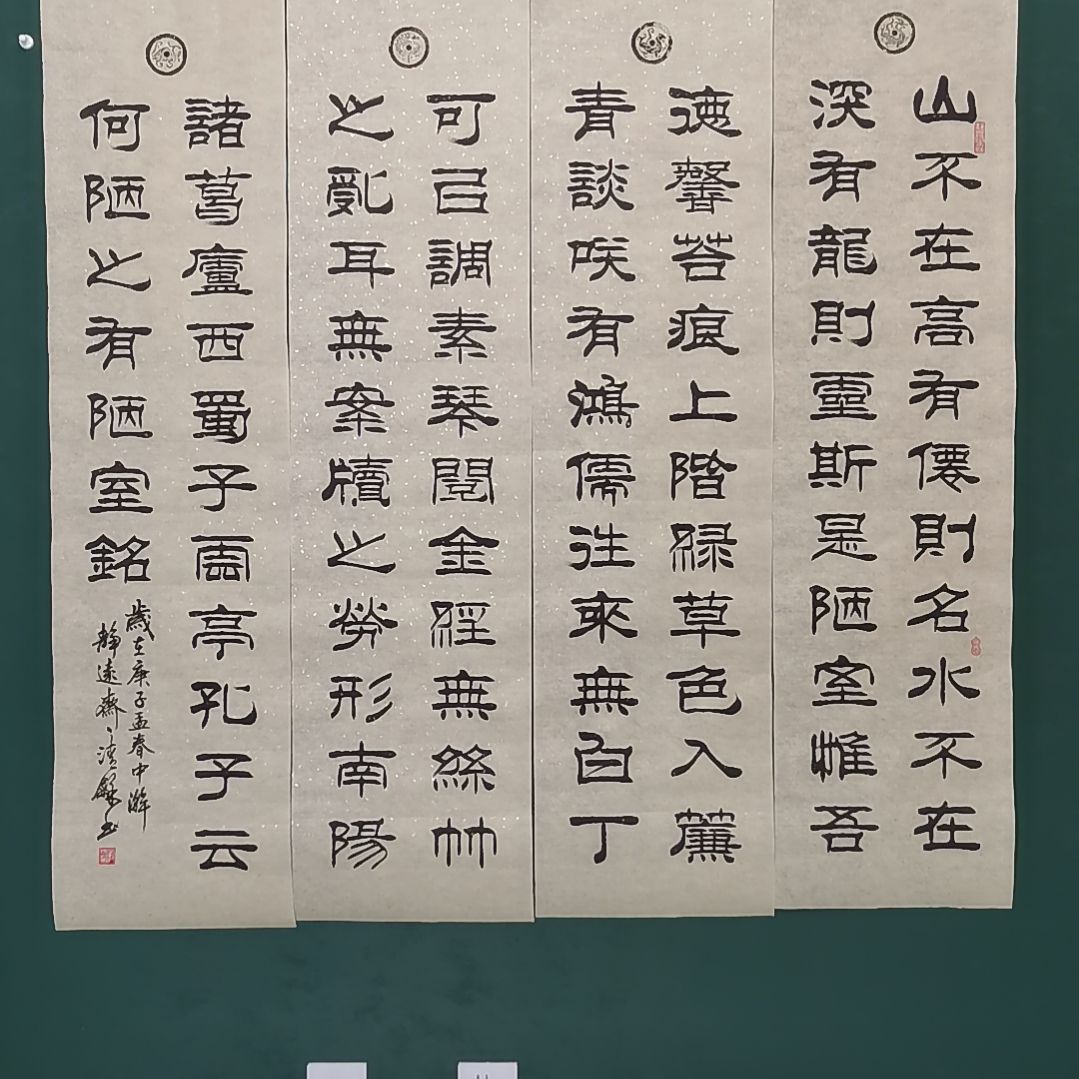 山不在高有僊則名水不在
深有龍則靈斯是陋室惟吾
德馨苔痕上階緑草色入簾
青談咲有鴻儒往來無白丁
可㠯調素琴閱金經無絲竹
之亂耳無案牘之勞形南陽
諸葛廬西蜀子雲亭孔子云
何陋之有陋室銘
歲在庚子孟春中澣
靜遠齋